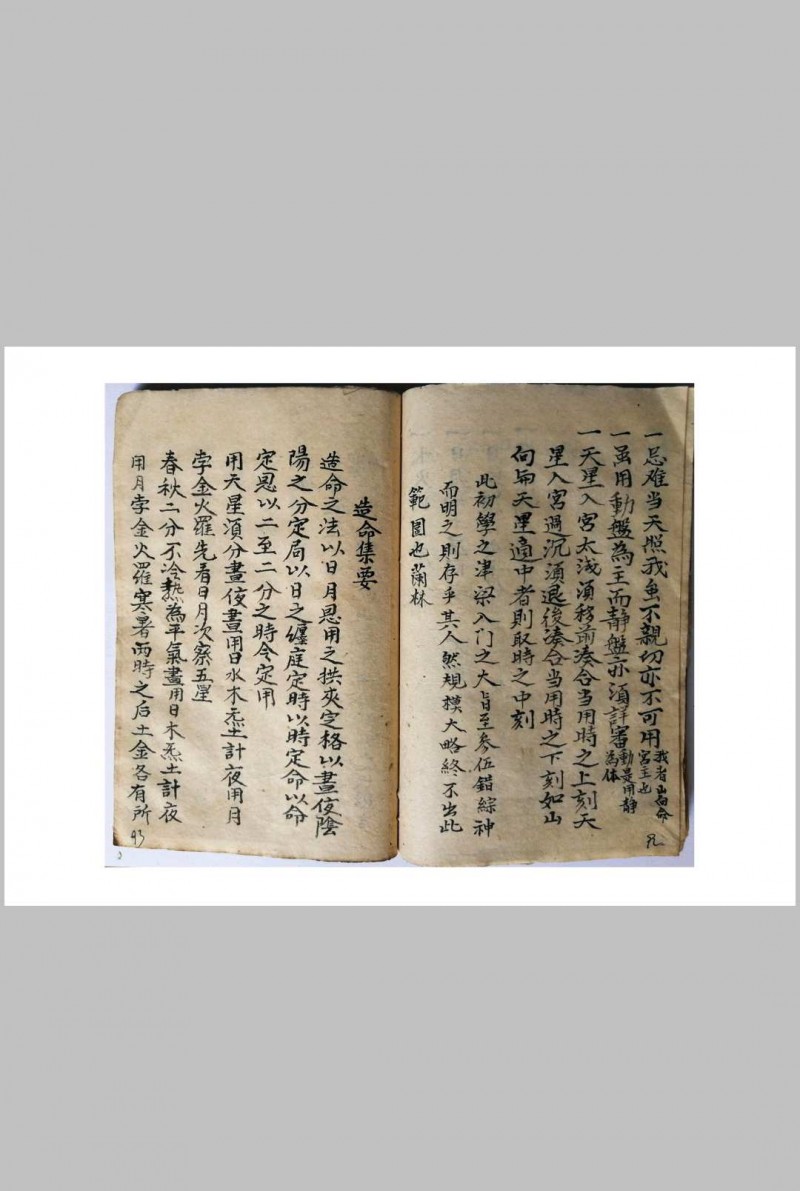 一忌难当天照我虽不親切亦不可用
我者山向命宮主也
一虽用動盤為主而静盤亦須詳審
動是用静為体
一天星入宮太浅須移前湊合当用時之上刻天
星入宮過沉須退後湊合当用時之下刻如山
向命天星適中者則取時之中刻
此初學之津梁入门之大旨至參伍錯綜神
而明之則存乎其人然規模大略終不出此
範围也蘭林
造命集要
造命之法以日月恩用之拱夾定格以晝夜陰
陽之分定局以日之纏度定時以時定命以命
定恩以二至二分之時令定用
用天星須分晝夜晝用日水木炁土計夜用月
孛金火羅先看日月次察五星
春秋二分不冷熱為平氣晝用日木炁土計夜
用月孛金火羅寒暑両時之后土金各有所
93